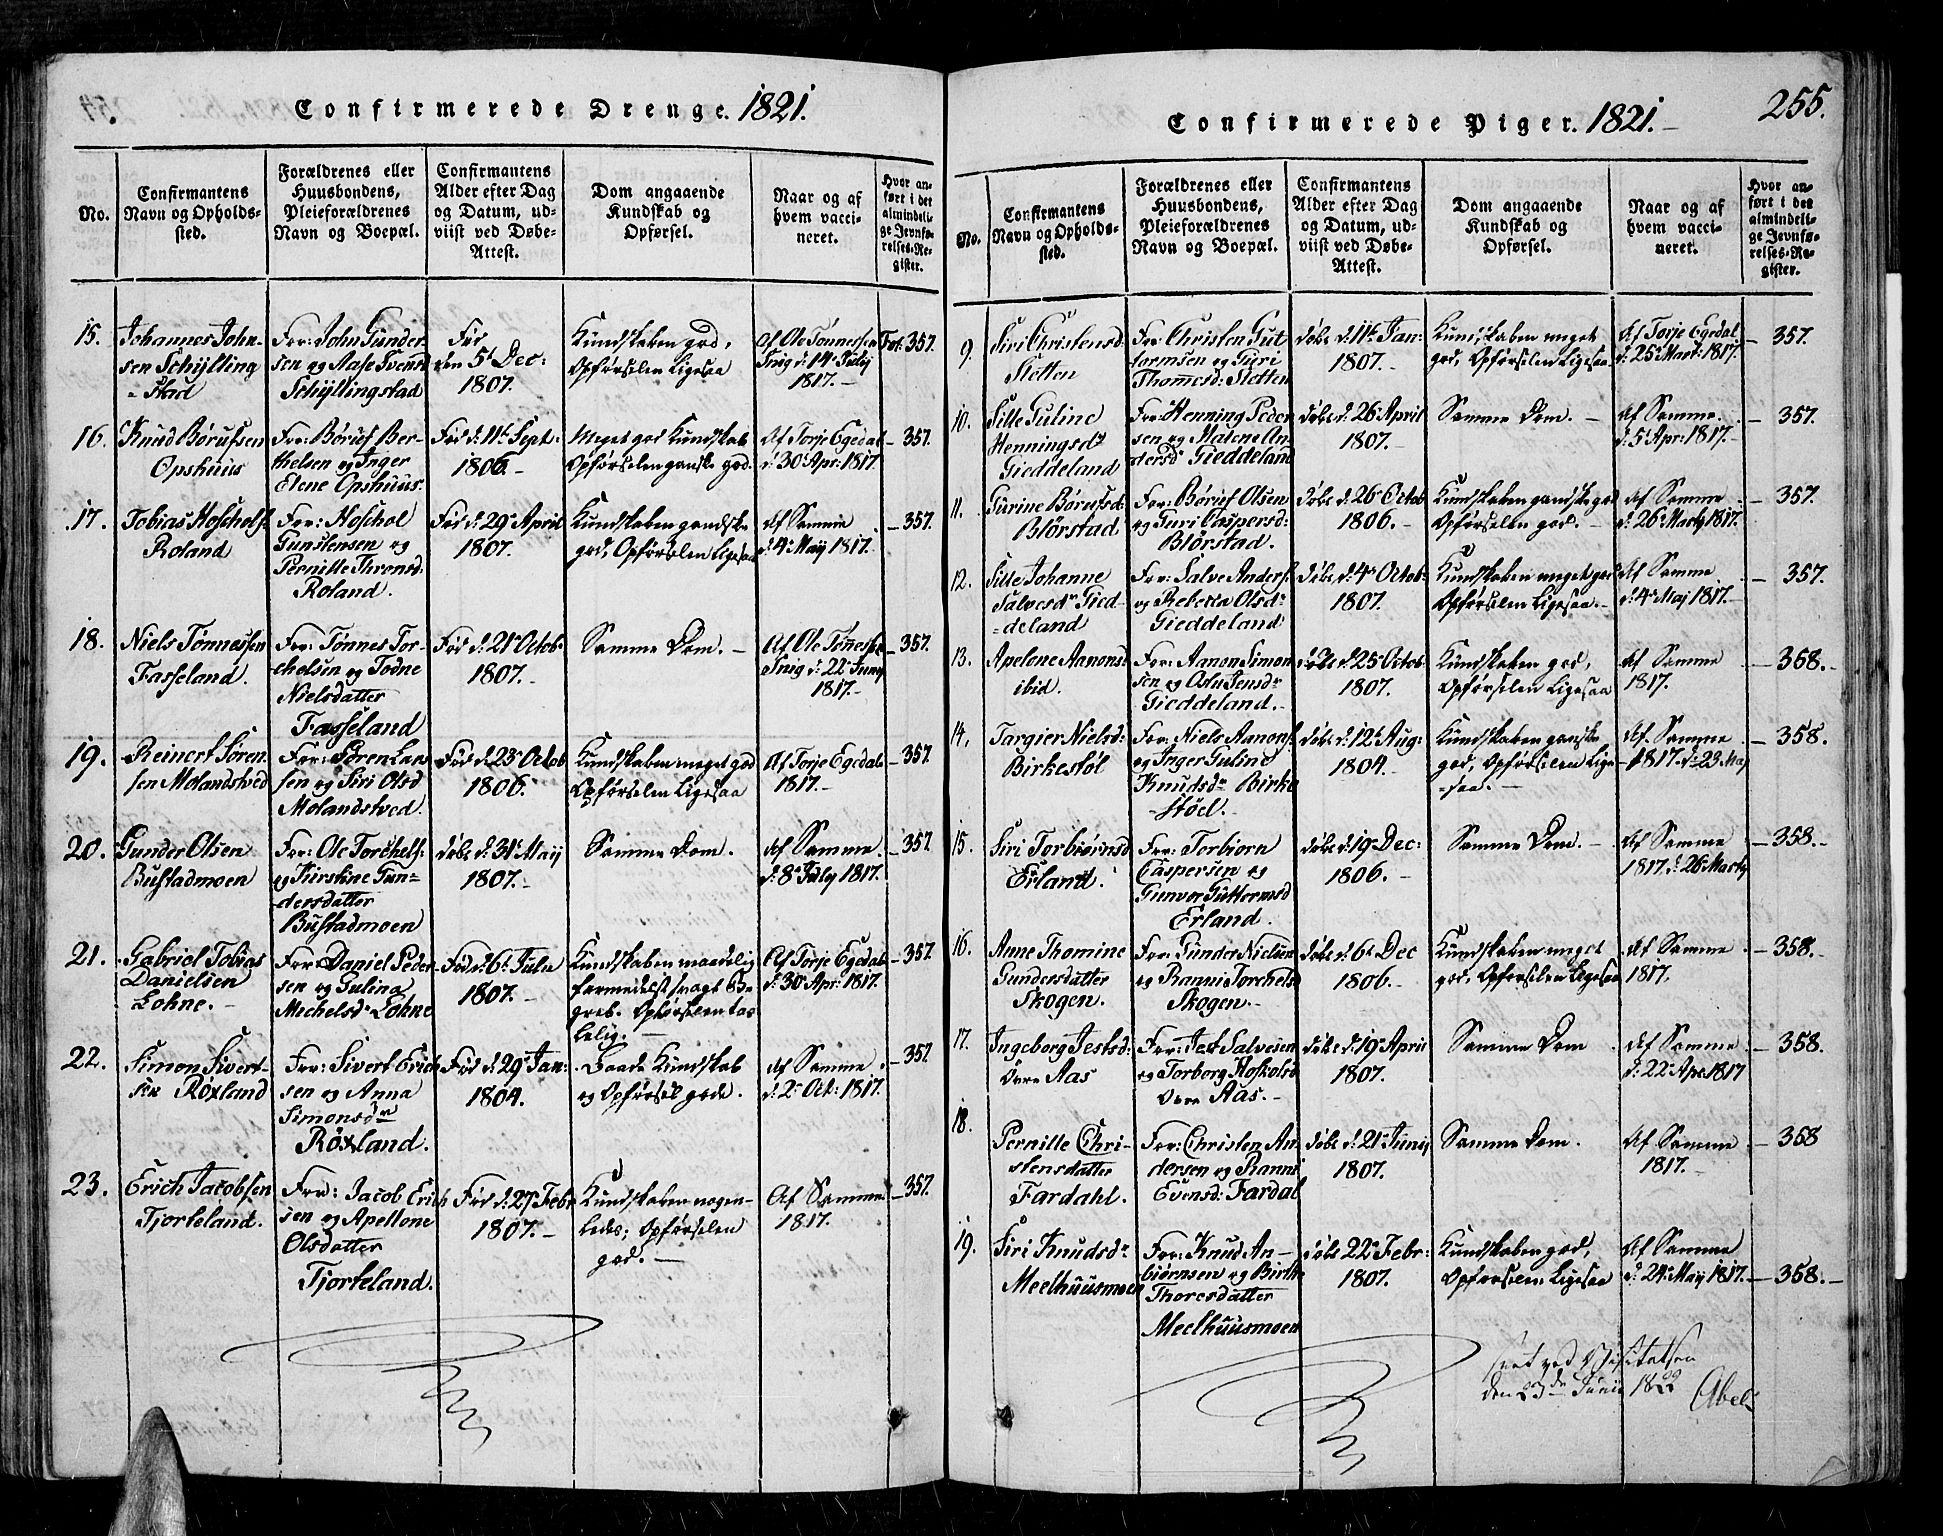 Confirmerede Drenge. 1821.
No.
Confirmantens
Navn og Opholds-
sted.
Forældrenes eller
Huusbondens,
Pleieforældrenes
Navn og Boepæl.
Confirmantens
Alder efter Dag
og Datum, ud-
viist ved Døbe-
Attest.
Dom angaaende
Kundskab og
Opførsel.
Naar og af
hvem vacci-
neret.
Hvor an-
ført i det
almindeli-
ge Jevnfø-
relses-Re-
gister.
15.
Johannes John-
sen Schÿlling
-stad
For: John Gunder
sen og Aase Svensd
Schÿllingstad
Fød
den 5t Dec:
1807.
Kundskaben god,
Opførselen Ligesaa
Af Ole Tønnessen
Tnig d: 14 Julÿ
1817.-
Fol. 357.
16.
Knud Børufsen
Opshuus
For: Børuf Ber-
thelsen og Inger
Elene Opshuus.
Fød d: 11te Sept:
1806.
Meget god Kundskab
Opførselen ganske god.
Af Torje Egedal
d: 30 Apr: 1817.
357.
17.
Tobias Hofcholfs
Roland
For: Hofchol
Gunstensen og
Pernille Thronsd:
Roland.
Fød d: 29 April
1807.
Kundskaben gandske
god, Opførselen Ligesaa
Af Samme
d: 4 Maÿ 1817.
357.
18.
Niels Tønnessen
Fasseland.
For: Tønnes Tor-
chelsen og Todne
Nielsdatter
Fasseland
Fød d: 21 Octob:
1807.
Samme Dom. -
Af Ole Tønnesse
Tnig d: 22 Junÿ
1817.-
357.
19.
Reinert Søren
sen Molandsved
For: Søren Lar
sen og Siri Olsd
Molandsved.
Fød d: 23 Octob
1806.
Kundskaben meget god
Opførselen Ligesaa
Af Torje Egedal
1817.-
357.
20.
Gunder Olsen
Bustadmoen
For: Ole Torchels:
og Kirstine Gun-
dersdatter
Bustadmoen
døbt d: 31 Maÿ
1807.-
Samme Dom.
Af Samme
d: 8 Julÿ 1817.
357.
21.
Gabriel Tobias
Danielsen
Lohne. -
For: Daniel Peder
sen og Gulina
Mechelsd: Lohne
Fød d: 6t Juln
1807.-
Kundskaben maadelig
formedelst svagt Be
greb. Opførselen tao
lelig. -
Af Torje Egedal
d: 30 Apr: 1817.
357.
22.
Simon Sivert-
sen Roxland
For: Sivert Erich
sen og Anna
Simonsdr
Røxland.
Fød d: 29 Jan:
1804.
Baade Kundskab
og Opførsel gode.
Af Samme
d: 2 Oct: 1817.
357
23.
Erich Jacobsen
Tjorteland.
For: Jacob Erich
sen og Apellone
Olsdatter
Tjorteland.
Fød d: 27 Febr
1807.-
Kundskaben nogen-
ledes; Opførselen
god. -
Af Samme
1817.
357.
Confirmerede Piger. 1821.-
255.
No.
Confirmantens
Navn og Opholds-
sted.
Forældrenes eller
Huusbondens,
Pleieforældrenes
Navn og Boepæl.
Confirmantens
Alder efter Dag
og Datum, ud-
viist ved Døbe-
Attest.
Dom angaaende
Kundskab og
Opførsel.
Naar og af
hvem vacci-
neret.
Hvor an-
ført i det
almindeli-
ge Jevnfø-
relses-Re-
gister.
9.
Siri Christensd
Sletten
For: Christen Gut
tormsen og Guri
Thomesd: Sletten
døbt d: 11te Jan:
1807.-
Kundskaben meget
god, Opførselen Ligesaa.
Af Torje Egedal
d: 25 Mart: 1817.
357.
10.
Sille Guline
Henningsdr
Gieddeland
For: Henning Peder
sen og Malene An
dersdr Gieddeland
døbt d: 26 April
1807.
Samme Dom. -
Af Samme.
d: 5 Apr: 1817.-
357.
11.
Gurine Børufsd:
Blørstad
For: Børuf Olsen
og Guri Caspersd:
Blørstad.
døbt d: 26 Octob
1806.-
Kundskaben gandske god
Opførselen god. -
Af Samme
d: 26 Martÿ 1817.
357.
12.
Sille Johanne
Salvesdr Gied-
=deland
For: Salve Anders:
og Rebekka Olsdr
Gieddeland
døbt d: 4 Octob:
1807.
Kundskaben meget god
Opførselen Ligesaa. -
Af Samme
d: 4 Maj 1817.-
357.
13.
Apelone Aanons:
ibid.
For: Aanon Simon
sen og Aslu Jensdr
Gieddeland.
døbt d: 25 Octob
1807.
Kundskaben god,
Opførselen Ligesaa
Af Samme
1817.
358.
14.
Targier Nielsd:
Birkestøl
For: Niels Aanons:
og Inger Guline
Knudsdr Birke
-støel.
døbt d: 12t Aug:
1804.
Kundskaben ganske
god, Opførselen Lige
-saa. -
Af Samme
1817 d: 23 Maj
358.
15.
Siri Torbiørnsd
Erland.
For: Torbiorn
Caspersen og
Gunvor Guttormsd
Erland.
døbt d: 19 Dec:
1806.-
Samme Dom. -
Af Samme
1817 d: 26 Martÿ
358.
16.
Anne Thomine
Gundersdatter
Skogen.
For: Gunder Nielsen
og Ranni Torchelsd
Skogen. -
døbt d: 6t Dec
1806.
Kundskaben meget
god, Opførselen Ligesaa
Af Samme
1817.
358.
17.
Ingeborg Jestsd:
Øvre Aas
For: Jest Salvesen
og Torborg Hoskolsd
Øvre Aas. -
døbt d: 19 April
1807.
Samme Dom
Af Samme
d: 22 Apr: 1817
358.
18.
Pernille Chri-
stensdatter
Fardahl.
For: Christen An
dersen og Ranni
Evensd: Fardal
døbt d: 21 Junÿ
1807.
Samme Dom.
Af Samme
1817.-
358
19.
Siri Knudsdr
Meelhuusmoen
For: Knud An-
biørnsen og Birthe
Thoresdatter
Meelhuusmoen
døbt 22 Febr:
1807.
Kundskaben god,
Opførselen Ligesaa
Af Samme
d: 24 Maÿ 1817.
358.-
seet ved Visitatsen
den 23de Junii 1822 Abel